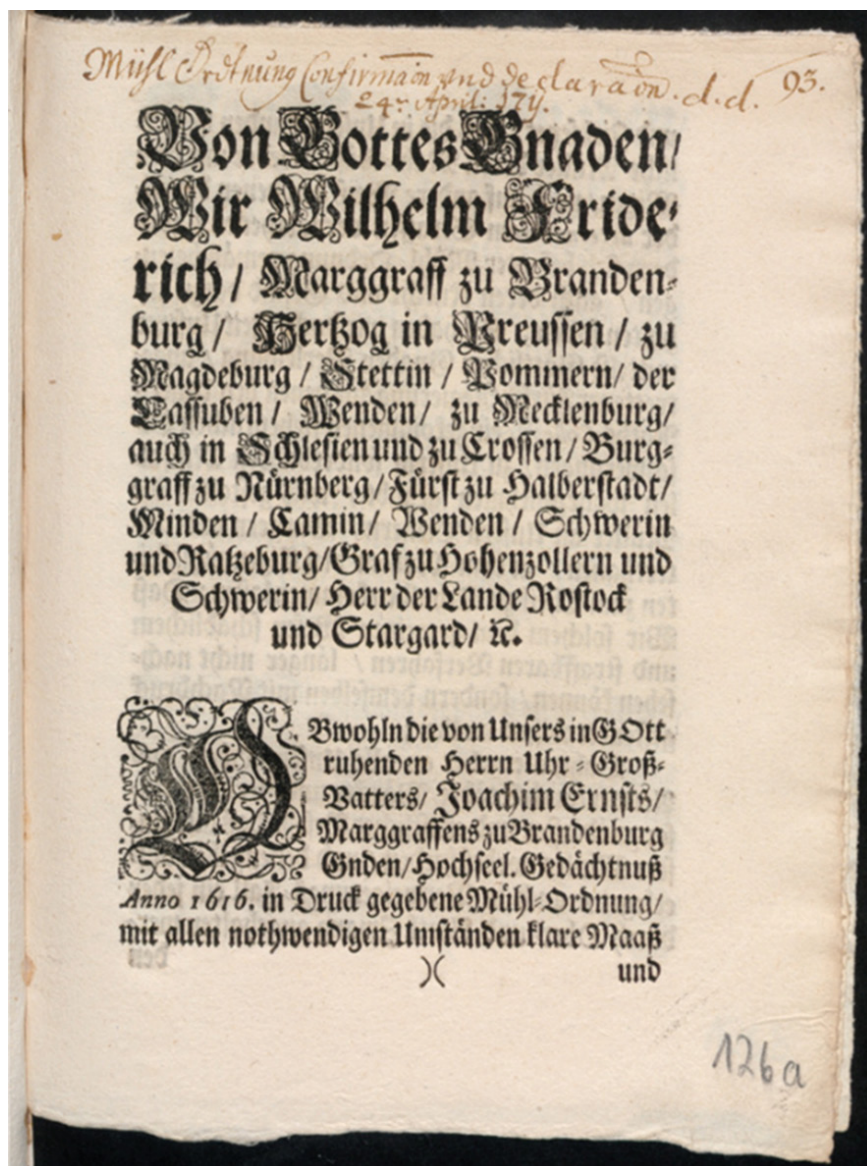 Mühl Ordnung Confirmaon und declaraon. d. d. 93.
24. April: 
Von Gottes Gnaden/
Wir Wilhelm Fride⸗
rich / Marggraff zu Branden⸗
burg / Hertzog in Preussen / zu
Magdeburg / Stettin / Pommern/ der
Cassuben / Wenden/ zu Mecklenburg/
auch in Schlesien und zu Crossen / Burg⸗
graff zu Nürnberg/ Fürst zu Halberstadt/
Minden / Camin/ Wenden / Schwerin
und Ratzeburg/ Graf zu Hohenzollern und
Schwerin/ Herr der Lande Rostock
und Stargard/ ꝛc.
OBwohln die von Unsers in GOtt
ruhenden Herrn Uhr⸗Groß⸗
Vatters/ Joachim Ernsts/
Marggraffens zu Brandenburg
Gnden/ Hochseel. Gedächtnuß
Anno 1616. in Druck gegebene Mühl⸗Ordnung/
mit allen nothwendigen Umständen klare Maaß
)( und
126a